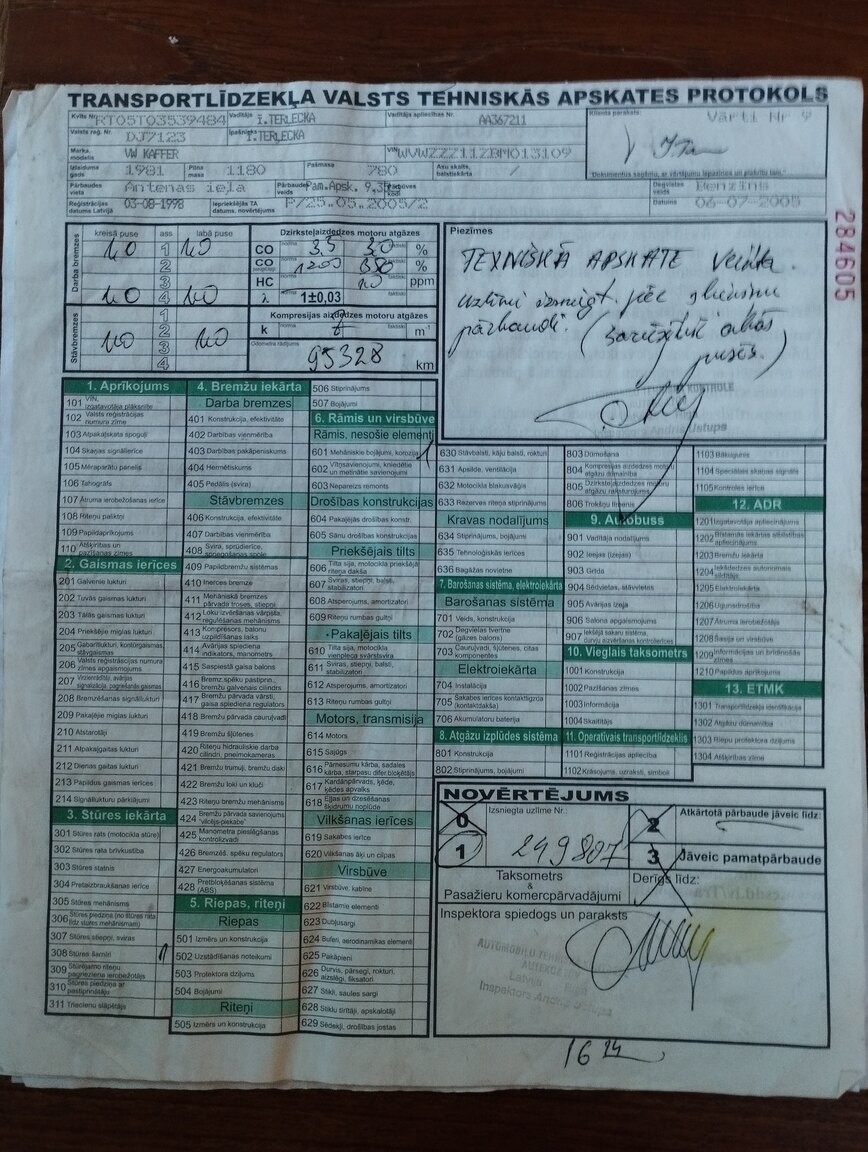 TRANSPORTLĪDZEKĻA VALSTS TEHNISKĀS APSKATES PROTOKOLS
Kvīts Nr. RT05T03539484 Vadītājs I.TERLECKA Vadītāja apliecības Nr. AA367211 Klienta paraksts: Vārti Nr 9
Valsts reģ. Nr. DJ7123 Īpašnieks I.TERLECKA
Marka, modelis VW KAFFER VIN WVWZZZ11ZBM013109
Izlaiduma gads 1981 Pilna masa 1180 Pašmasa 780 Asu skaits, balstiekārta /
Pārbaudes vieta Antenas iela Pam.Apsk. 9,35 Degvielas veids Benzīns
Reģistrācijas datums Latvijā 03-08-1998 Iepriekšējās TA datums, novērtējums P/25.05.2005/2 Datums 06-07-2005
284605
Darba bremzes
kreisā puse ass labā puse
1
2
3
4
Stāvbremzes
1
2
3
4
Dzirksteļaizdedzes motoru atgāzes
CO norma 3,5 3,0 %
CO %
HC ppm
λ 1±0,03
Kompresijas aizdedzes motoru atgāzes
k norma m-1
Odometra rādījums 95328 km
Piezīmes
TEXNISKĀ APSKATE veikta.
uzlīmi izsniegt pēc
pārbaudi.
1. Aprīkojums
101 VIN, izgatavotāja plāksnīte
102 Valsts reģistrācijas numura zīme
103 Atpakaļskata spoguļi
104 Skaņas signālierīce
105 Mēraparātu panelis
106 Tahogrāfs
107 Ātruma ierobežošanas ierīce
108 Riteņu paliktņi
109 Papildaprīkojums
110 Atšķirības un pazīšanas zīmes
2. Gaismas ierīces
201 Galvenie lukturi
202 Tuvās gaismas lukturi
203 Tālās gaismas lukturi
204 Priekšējie miglas lukturi
205 Gabarītlukturi, kontūrgaismas, stāvgaismas
206 Valsts reģistrācijas numura zīmes apgaismojums
207 Virzienrādītāji, avārijas signalizācija, pagriešanās gaismas
208 Bremzēšanas signāllukturi
209 Pakaļējie miglas lukturi
210 Atstarotāji
211 Atpakaļgaitas lukturi
212 Dienas gaitas lukturi
213 Papildus gaismas ierīces
214 Signāllukturu pārklājumi
3. Stūres iekārta
301 Stūres rats (motocikla stūre)
302 Stūres rata brīvkustība
303 Stūres statnis
304 Pretaizbraukšanas ierīce
305 Stūres mehānisms
306 Stūres piedziņa (no stūres rata līdz stūres mehānismam)
307 Stūres stiepņi, sviras
308 Stūres šarnīri 1
309 Stūrējamo riteņu pagrieziena ierobežotājs
310 Stūres piedziņa ar pastiprinātāju
311 Triecienu slāpētājs
4. Bremžu iekārta
Darba bremzes
401 Konstrukcija, efektivitāte
402 Darbības vienmērība
403 Darbības pakāpeniskums
404 Hermētiskums
405 Pedālis (svira)
Stāvbremzes
406 Konstrukcija, efektivitāte
407 Darbības vienmērība
408 Svira, sprūdierīce, spriegošanas spole
409 Papildbremžu sistēmas
410 Inerces bremze
411 Mehāniskā bremžu pārvada troses, stiepņi
412 Loku izvēršanas vārpsta, regulēšanas mehānisms
413 Kompresors, balonu uzpildīšanas laiks
414 Avārijas spiediena indikators, manometrs
415 Saspiestā gaisa balons
416 Bremž.spēku pastiprin., bremžu galvenais cilindrs
417 Bremžu pārvada vārsti, gaisa spiediena regulators
418 Bremžu pārvada cauruļvadi
419 Bremžu pārvada šļūtenes
420 Riteņu hidrauliskie darba cilindri, pneimokameras
421 Bremžu trumuļi, bremžu diski
422 Bremžu loki un kluči
423 Riteņu bremžu mehānisms
424 Bremžu pārvada savienojums "vilcējs-piekabe"
425 Manometra pieslēgšanas kontrolizvadi
426 Bremzēš. spēku regulators
427 Energoakumulatori
428 Pretbloķēšanas sistēma (ABS)
5. Riepas, riteņi
Riepas
501 Izmērs un konstrukcija
502 Uzstādīšanas noteikumi
503 Protektora dziļums
504 Bojājumi
Riteņi
505 Izmērs un konstrukcija
506 Stiprinājums
507 Bojājumi
6. Rāmis un virsbūve
Rāmis, nesošie elementi
601 Mehāniskie bojājumi, korozija 1
602 Vītņsavienojumi, kniedētie un metinātie savienojumi
603 Nepareizs remonts
Drošības konstrukcijas
604 Pakaļējās drošības konstr.
605 Sānu drošības konstrukcijas
Priekšējais tilts
606 Tilta sija, motocikla priekšējā riteņa dakša
607 Sviras, stiepņi, balsti, stabilizatori
608 Atsperojums, amortizatori
609 Riteņu rumbas gultņi
Pakaļējais tilts
610 Tilta sija, motocikla vienpleca svārstsvira
611 Sviras, stiepņi, balsti, stabilizatori
612 Atsperojums, amortizatori
613 Riteņu rumbas gultņi
Motors, transmisija
614 Motors
615 Sajūgs
616 Pārnesumu kārba, sadales kārba, starpasu difer.bloķētājs
617 Kardānpārvads, ķēde, ķēdes apvalks
618 Eļļas un dzesēšanas šķidrumu noplūde
Vilkšanas ierīces
619 Sakabes ierīce
620 Vilkšanas āķi un cilpas
Virsbūve
621 Virsbūve, kabīne
622 Bīstamie elementi
623 Dubļusargi
624 Buferi, aerodinamikas elementi
625 Pakāpieni
626 Durvis, pārsegi, rokturi, aizslēgi, fiksatori
627 Stikli, saules sargi
628 Stiklu tīrītāji, apskalotāji
629 Sēdekļi, drošības jostas
630 Stāvbalsti, kāju balsti, rokturi
631 Apsilde, ventilācija
632 Motocikla blakusvāģis
633 Rezerves riteņa stiprinājums
Kravas nodalījums
634 Stiprinājumi, bojājumi
635 Tehnoloģiskās ierīces
636 Bagāžas novietne
7. Barošanas sistēma, elektroiekārta
Barošanas sistēma
701 Veids, konstrukcija
702 Degvielas tvertne (gāzes balons)
703 Cauruļvadi, šļūtenes, citas komponentes
Elektroiekārta
704 Instalācija
705 Sakabes ierīces kontaktligzda (kontaktdakša)
706 Akumulatoru baterija
8. Atgāzu izplūdes sistēma
801 Konstrukcija
802 Stiprinājums, bojājumi
803 Dūmošana
804 Kompresijas aizdedzes motoru atgāzu dūmainība
805 Dzirksteļaizdedzes motoru atgāzu raksturojums
806 Trokšņu līmenis
9. Autobuss
901 Vadītāja nodalījums
902 Ieejas (izejas)
903 Grīda
904 Sēdvietas, stāvvietas
905 Avārijas izeja
906 Salona apgaismojums
907 Iekšējā sakaru sistēma, durvju aizvēršanas kontrolierīces
10. Vieglais taksometrs
1001 Konstrukcija
1002 Pazīšanas zīmes
1003 Informācija
1004 Skaitītājs
11. Operatīvais transportlīdzeklis
1101 Reģistrācijas apliecība
1102 Krāsojums, uzraksti, simboli
1103 Bākugunis
1104 Speciālais skaņas signāls
1105 Kontroles ierīce
12. ADR
1201 Izgatavotāja apliecinājums
1202 Bīstamās iekārtas atbilstības apliecinājums
1203 Bremžu iekārta
1204 Iekšdedzes autonomais sildītājs
1205 Elektroiekārta
1206 Ugunsdrošība
1207 Ātruma ierobežotājs
1208 Šasija un virsbūve
1209 Informācijas un brīdinošās zīmes
1210 Papildus aprīkojums
13. ETMK
1301 Transportlīdzekļa identifikācija
1302 Atgāzu dūmainība
1303 Riepu protektora dziļums
1304 Atšķirības zīmes
NOVĒRTĒJUMS
0 Izsniegta uzlīme Nr. 2 Atkārtotā pārbaude jāveic līdz:
1 249807 3 Jāveic pamatpārbaude
Taksometrs & Pasažieru komercpārvadājumi Derīgs līdz:
Inspektora spiedogs un paraksts
16 24